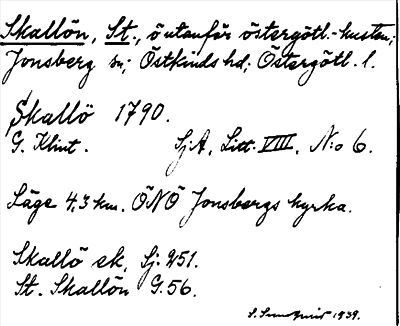 Skallön, St., ö utanför östergötl.-kusten;
Jonsberg sn; Östkinds hd; Östergötl. l.
Skallö 1790.
G. Klint. SjA, Litt. VIII, N:o 6.
Läge 4,3 km. ÖNÖ Jonsbergs kyrka.
Skallö ek, Sj: 251.
St. Skallön G. 56.
1939.